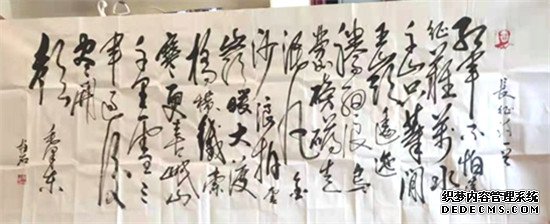 長征
红军不怕远
征難萬水
千山只等闲
五嶺逶迤
腾细浪乌
蒙磅礴走
泥丸金
沙浪拍云
崖暖大渡
橋横鐵索
寒更喜岷山
千里雪三
軍过后
尽開
颜
毛澤東
织梦内容管理系统
DEDECMS.COM